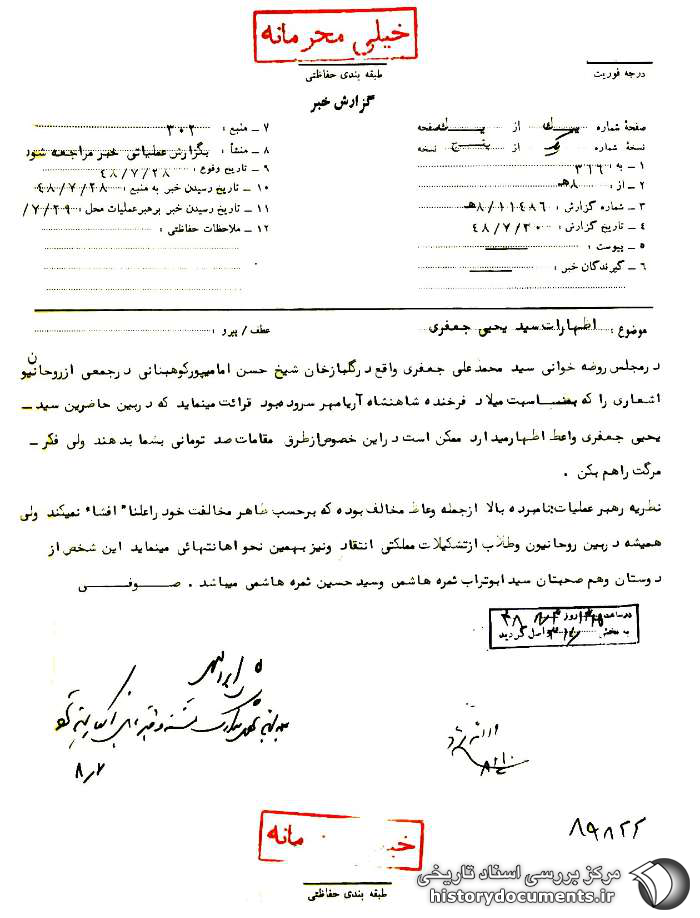 خیلی محرمانه
طبقه بندی حفاظتی
درجه فوریت
گزارش خبر
صفحهٔ شماره یک از یک صفحه
نسخهٔ شماره یک از پنج نسخه
۱ ـ به : ۳۶۶
۲ ـ از : ۸هـ
۳ ـ شماره گزارش : ۸/۱۱۴۸۶هـ
۴ ـ تاریخ گزارش : ۴۸/۷/۳۰
۵ ـ پیوست :
۶ ـ گیرندگان خبر :
۷ ـ منبع : ۳۰۲
۸ ـ منشأ : بگزارش عملیاتی خبر مراجعه شود
۹ ـ تاریخ وقوع : ۴۸/۷/۲۸
۱۰ ـ تاریخ رسیدن خبر به منبع : ۴۸/۷/۲۸
۱۱ ـ تاریخ رسیدن خبر برهبر عملیات محل : /۷/۲۹
۱۲ ـ ملاحظات حفاظتی :
موضوع : اظهارات سید یحیی جعفری
عطف / پیرو :
در مجلس روضه خوانی سید محمد علی جعفری واقع در گلبازخان شیخ حسن امامیپور کوهبنانی در جمعی از روحانیون
اشعاری را که بمناسبت میلاد فرخنده شاهنشاه آریامهر سروده بود قرائت مینماید که در بین حاضرین سید ـ
یحیی جعفری واعظ اظهار میدارد ممکن است در این خصوص از طرق مقامات صد تومانی بشما بدهند ولی فکر ـ
مرگت را هم بکن .
نظریه رهبر عملیات : نامبرده بالا از جمله وعاظ مخالف بوده که بر حسب ظاهر مخالفت خود را علنا" افشاء نمیکند ولی
همیشه در بین روحانیون و طلاب از تشکیلات مملکتی انتقاد و نیز بهمین نحو اهانتهائی مینماید این شخص از
دوستان و هم صحبتان سید ابوتراب ثمره هاشمی و سید حسین ثمره هاشمی میباشد . صوفی
در ساعت روز
به بخش واصل گردید
ارائه شد
۸۹۸۲۲
طبقه بندی حفاظتی
مرکز بررسی اسناد تاریخی
historydocuments.ir